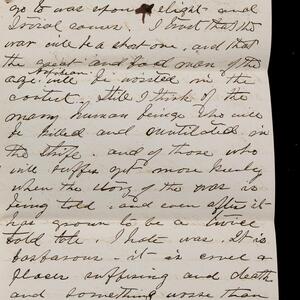 go to was upon slight and
social causes. I trust that the
war will be a short one, and that
the great and bad man of the
Napoleon
age will be worsted in the
contest. Still I think of the
many human beings who will
be killed and mutilated in
the strife. and of those who
will suffer yet more keenly
when the story of the war is
being told. and even after it
has grown to be a twice
told tale. I hate war. It is
barbarous - it is cruel &
suffering and death
and something worse than